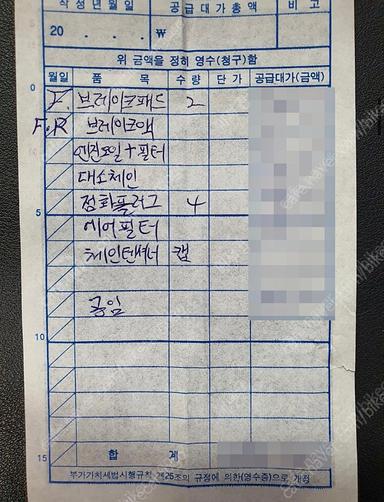 작성년월일 공급대가총액 비고
20 . . . ₩
위 금액을 정히 영수(청구)함
월일 품 목 수량 단가 공급대가(금액)
F. 브레이크패드 2
F.R 브레이크액
엔진오일+필터
대소체인
5 점화플러그 4
에어필터
체인텐셔너 캡
공임
10
15 합 계
부가가치세법시행규칙 제25조의 규정에 의한(영수증)으로 개정